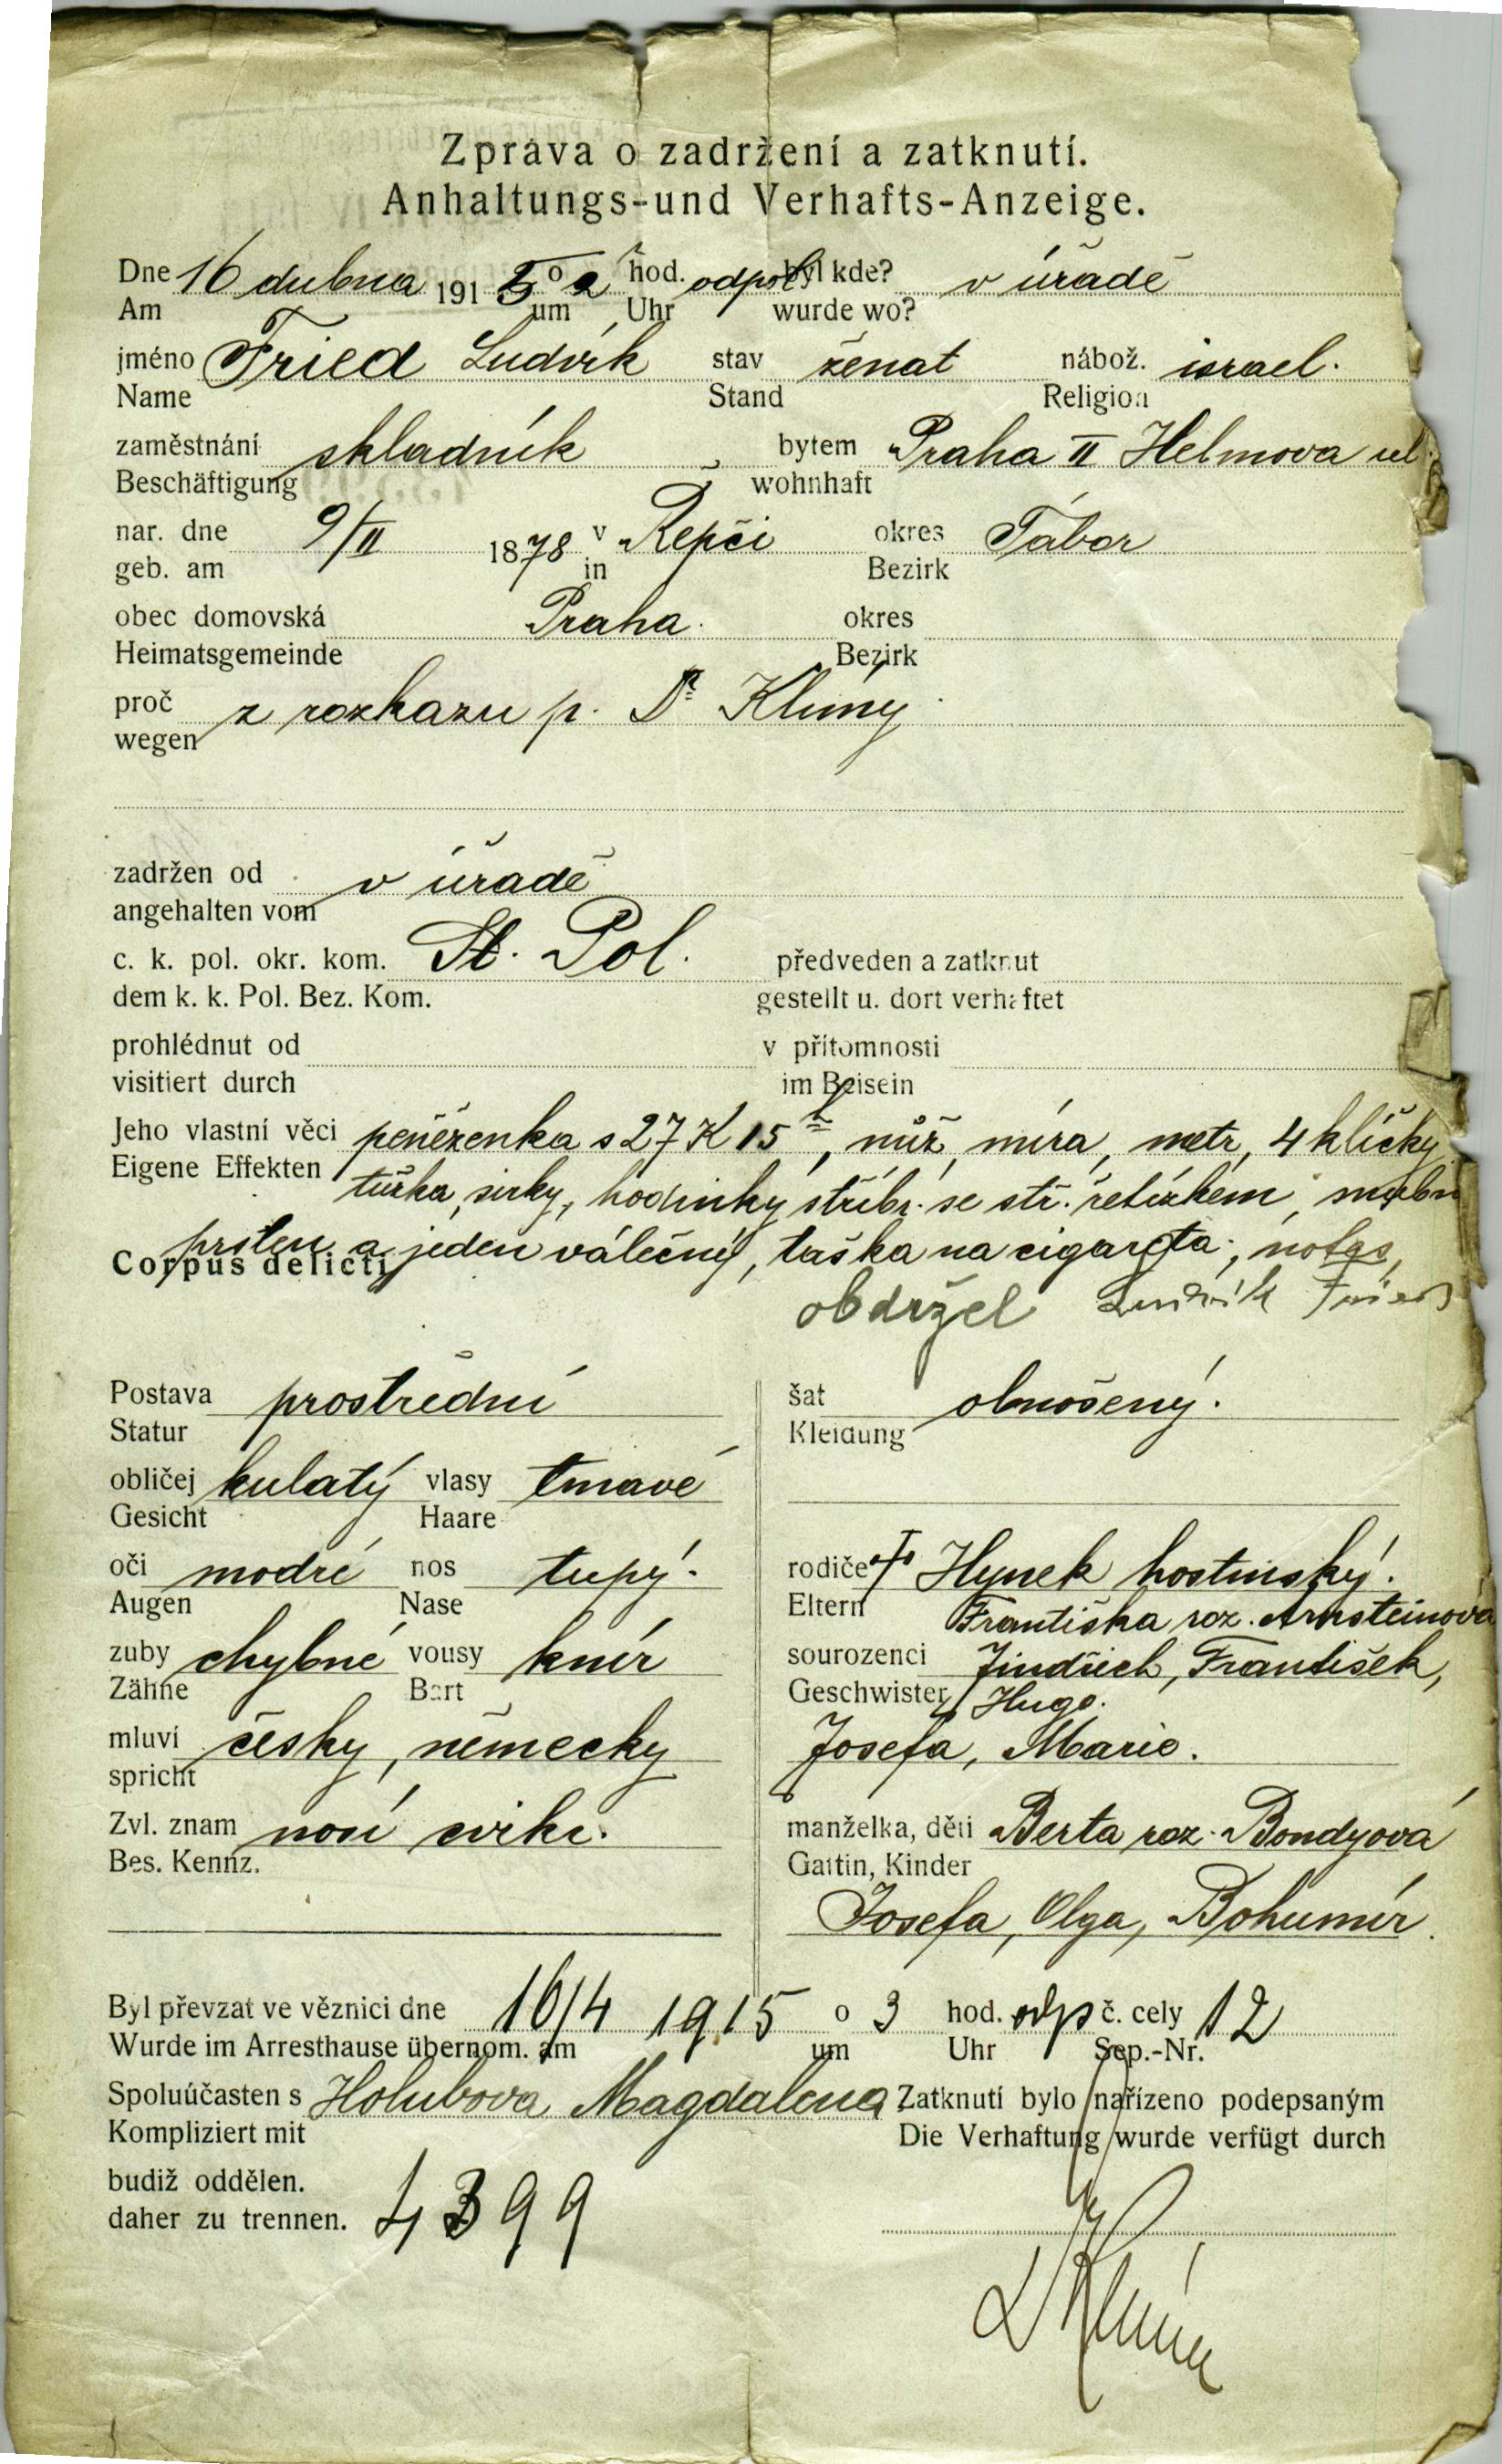 Zpráva o zadržení a zatknutí.
Anhaltungs-und Verhafts-Anzeige.
Dne 16 dubna 1915 o 2 hod. odpol byl kde? v úřadě
Am um Uhr wurde wo?
jméno Fried Ludvík stav ženat nábož. israel.
Name Stand Religion
zaměstnání skladník bytem Praha II Helmova ul.
Beschäftigung wohnhaft
nar. dne 9/II 1878 v Řepči okres Tábor
geb. am in Bezirk
obec domovská Praha. okres
Heimatsgemeinde Bezirk
proč z rozkazu p. Dr Klímy
wegen
zadržen od v úřadě
angehalten vom
c. k. pol. okr. kom. St. Pol. předveden a zatknut
dem k. k. Pol. Bez. Kom. gestellt u. dort verhaftet
prohlédnut od v přítomnosti
visitiert durch im Beisein
Jeho vlastní věci peněženka s 27 K 15 h, nůž, míra, metr, 4 klíčky
Eigene Effekten tužka, sirky, hodinky stříbr. se stř. řetízkem, snubní
prsten a jeden válečný, taška na cigareta, notes,
Corpus delicti
obdržel Ludvík Fried
Postava prostřední šat obnošený.
Statur Kleidung
obličej kulatý vlasy tmavé
Gesicht Haare
oči modré nos tupý. rodiče † Hynek hostinský.
Augen Nase Eltern Františka roz. Arnsteinová
zuby chybné vousy knír sourozenci Jindřich, František,
Zähne Bart Geschwister Hugo.
mluví česky, německy Josefa, Marie.
spricht
Zvl. znam nosí cvikr. manželka, děti Berta roz. Bondyová
Bes. Kennz. Gattin, Kinder
Josefa, Olga, Bohumír.
Byl převzat ve věznici dne 16/4 1915 o 3 hod. odp č. cely 12
Wurde im Arresthause übernom. am um Uhr Sep.-Nr.
Spoluúčasten s Holubova Magdalena Zatknutí bylo nařízeno podepsaným
Kompliziert mit Die Verhaftung wurde verfügt durch
budiž oddělen.
daher zu trennen. 4399
Dr Klíma